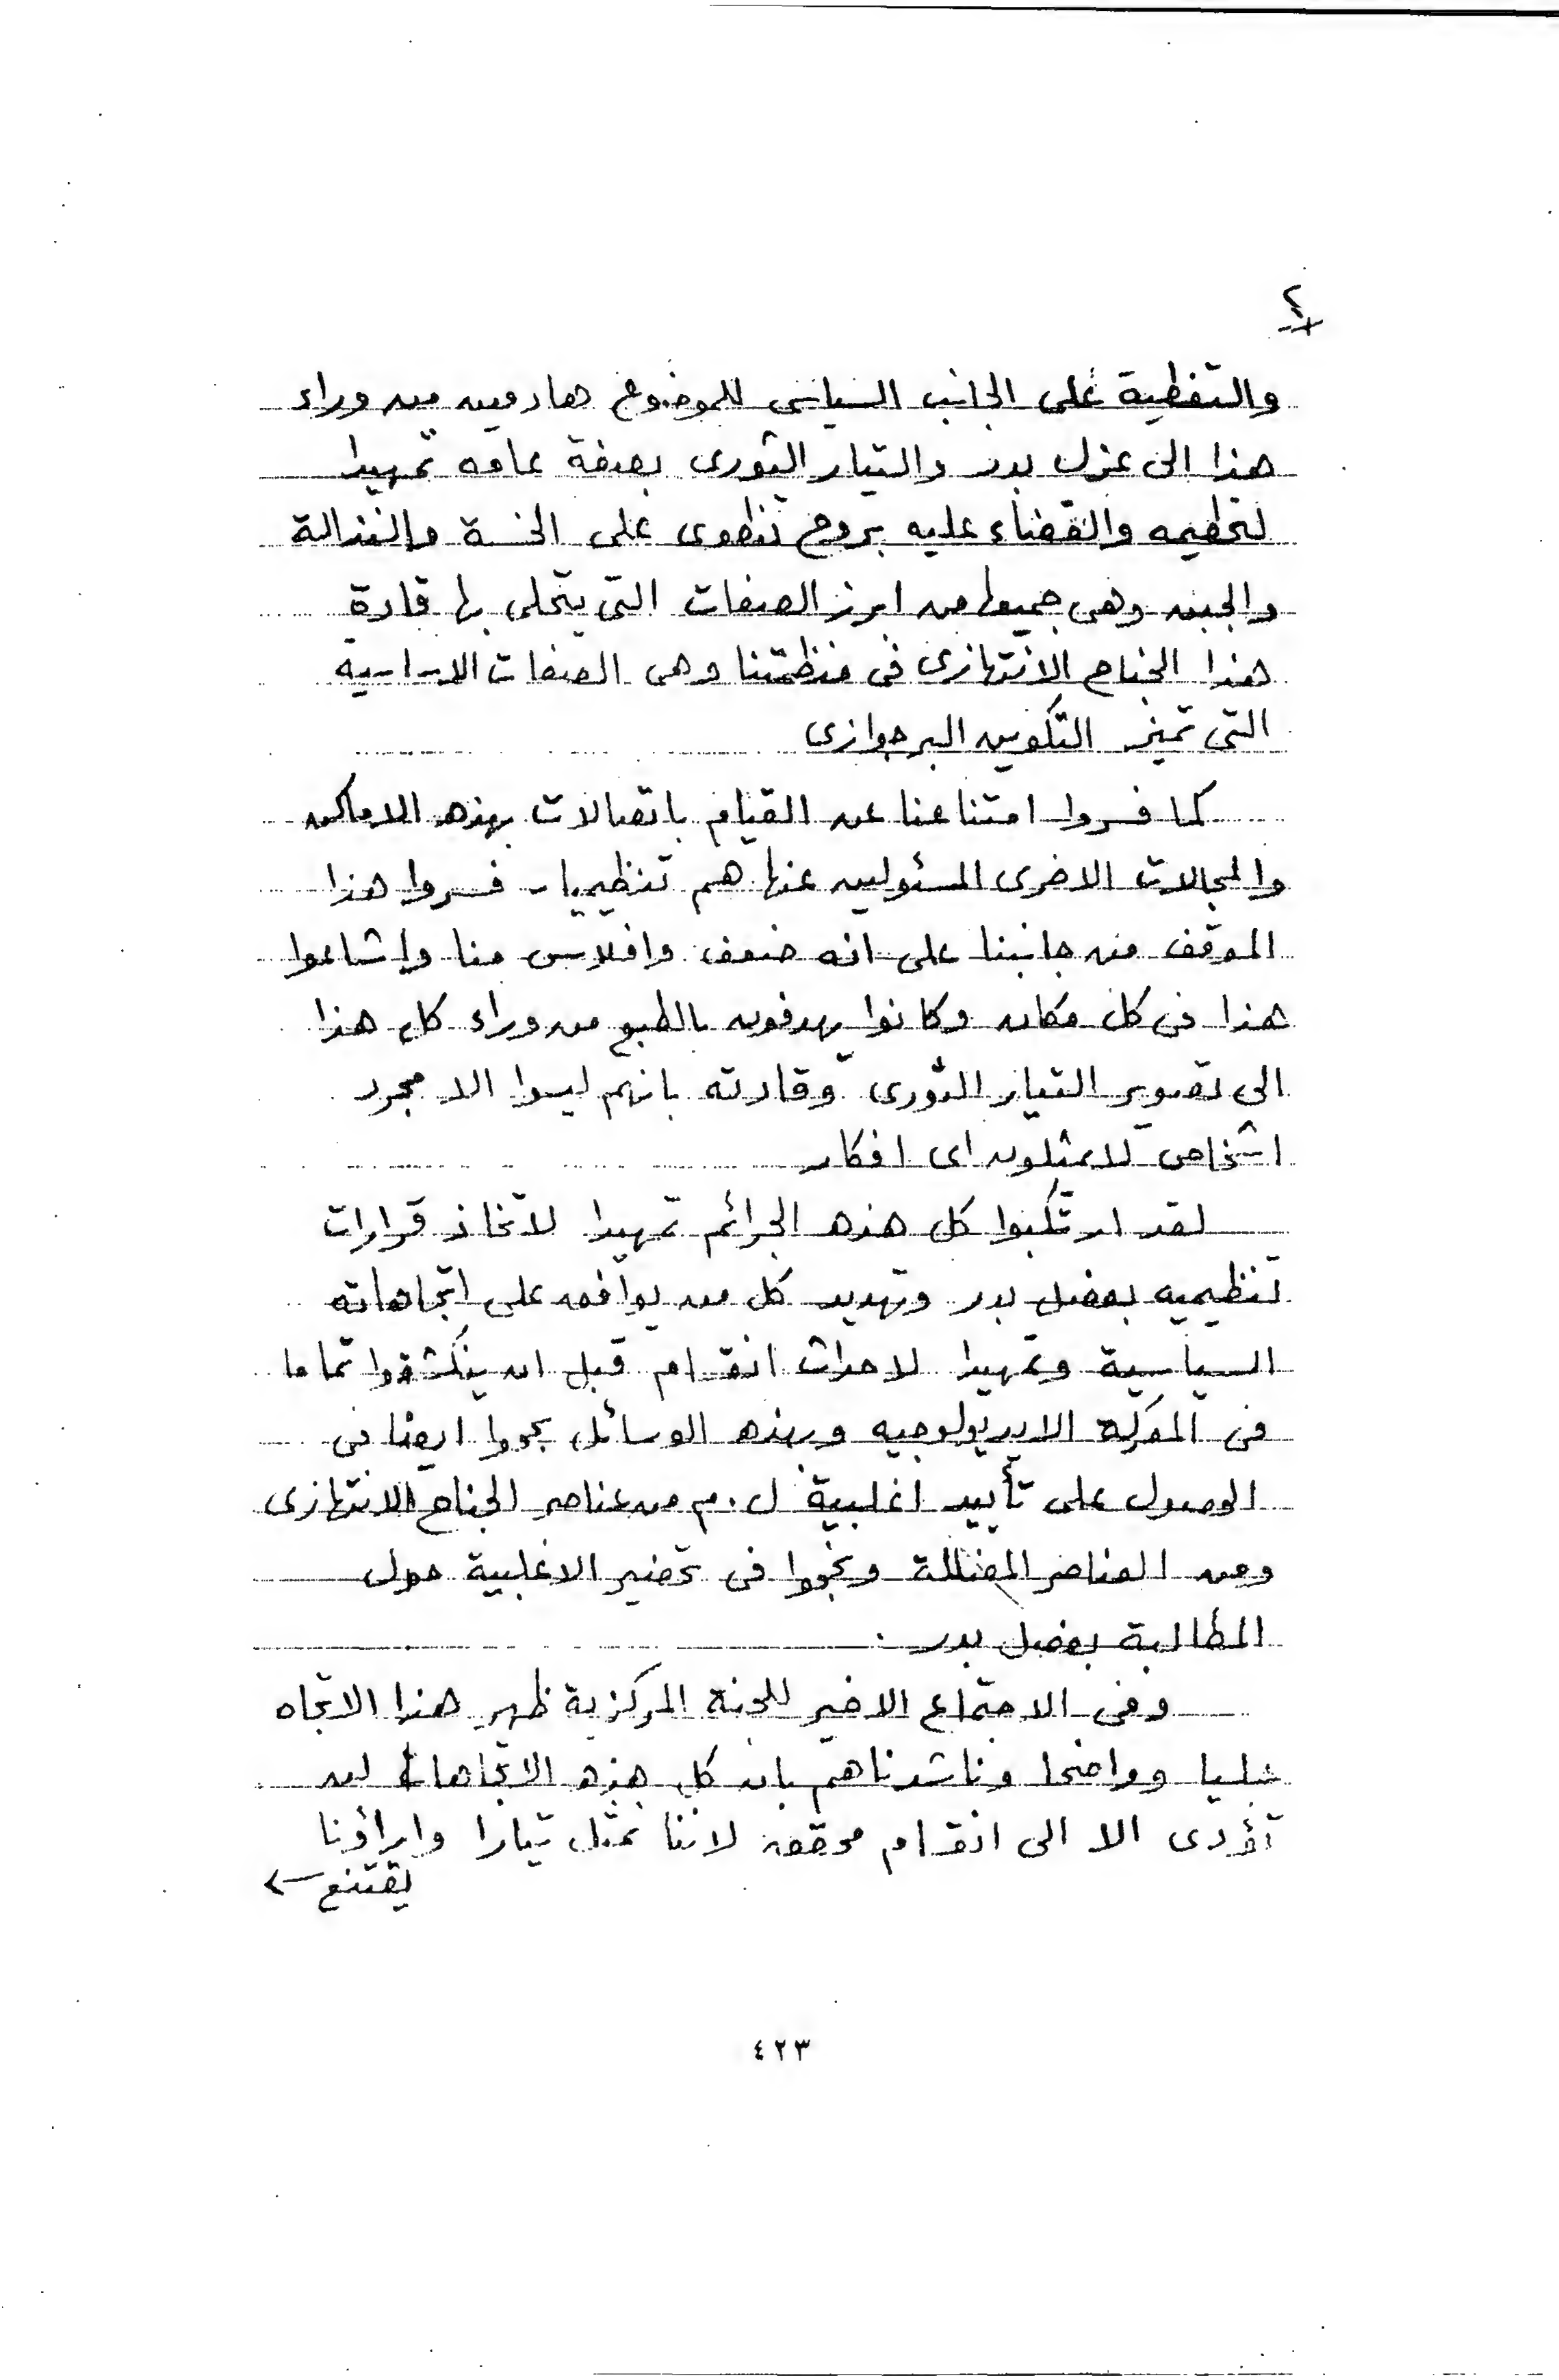 ٤
والتغطية على الجانب السياسى للموضوع هادفين من وراء
هذا الى عزل بدر والتيار الثورى بصفة عامه تمهيدا
لتحطيمه والقضاء عليه بروح تنطوى على الخسة والنذالة
والجبن وهى جميعا من ابرز الصفات التى يتحلى بها قادة
هذا الجناح الانتهازى فى منظمتنا وهى الصفات الاساسية
التى تميز التكوين البرجوازى
كما فسروا امتناعنا عن القيام باتصالات بهذه الاماكن
والمجالات الاخرى المسئولين عنها هم تنظيميا - فسروا هذا
الموقف من جانبنا على انه ضعف وافلاس منا واشاعوا
هذا فى كل مكان وكانوا يهدفون بالطبع من وراء كل هذا
الى تصوير التيار الثورى وقادته بانهم ليسوا الا مجرد
اشخاص لا يمثلون اى افكار
لقد ارتكبوا كل هذه الجرائم تمهيدا لاتخاذ قرارات
تنظيميه بفصل بدر وتهديد كل من يوافق على اتجاهاته
السياسية وتمهيدا لاحداث انقسام قبل ان ينكشفوا تماما
فى المعركة الايديولوجيه وبهذه الوسائل نجحوا ايضا فى
الوصول على تأييد اغلبية ل . م من عناصر الجناح الانتهازى
ومن العناصر المضللة ونجحوا فى تحضير الاغلبية حول
المطالبة بفصل بدر .
وفى الاجتماع الاخير للجنة المركزية ظهر هذا الاتجاه
جليا وواضحا وناشدناهم بان كل هذه الاتجاهات لن
تؤدى الا الى انقسام محقق لاننا نمثل تيارا واراؤنا
يقتنع
٤٢٣